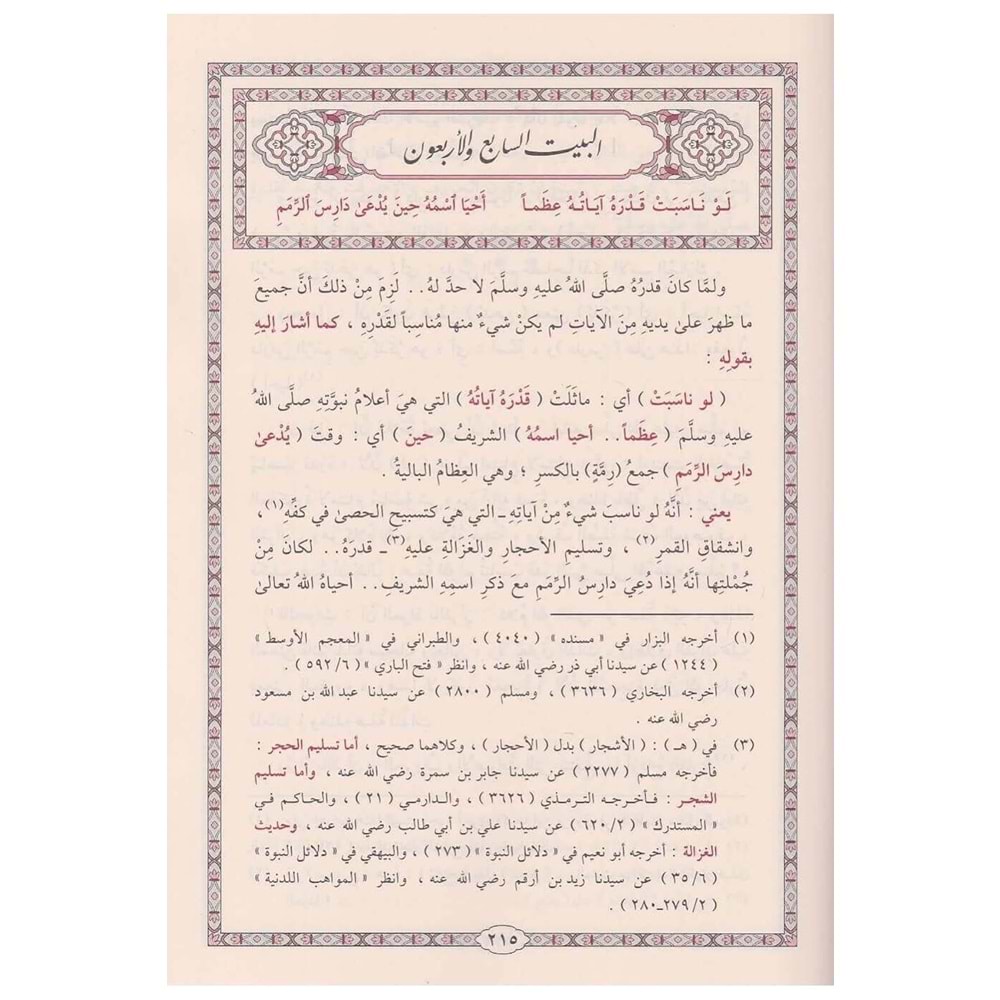 البيت السابع والأربعون
لَوْ نَاسَبَتْ قَدْرَهُ آيَاتُهُ عِظَماً أَحْيَا ٱسْمُهُ حِينَ يُدْعَىٰ دَارِسَ ٱلرِّمَمِ
ولمَّا كانَ قدرُهُ صلَّى اللهُ عليهِ وسلَّمَ لا حدَّ لهُ.. لَزِمَ مِنْ ذلكَ أنَّ جميعَ
ما ظهرَ علىٰ يديهِ مِنَ الآياتِ لم يكنْ شيءٌ منها مُناسِباً لقَدْرِهِ ، كما أشارَ إليهِ
بقولِهِ :
( لو ناسَبَتْ ) أي : ماثَلَتْ ( قَدْرَهُ آياتُهُ ) التي هيَ أعلامُ نبوَّتِهِ صلَّى اللهُ
عليهِ وسلَّمَ ( عِظَماً.. أحيا اسمُهُ ) الشريفُ ( حينَ ) أي : وقتَ ( يُدْعىٰ
دارِسَ الرِّمَمِ ) جمعُ (رِمَّةٍ) بالكسرِ ؛ وهي العِظامُ الباليةُ .
يعني : أنَّهُ لو ناسبَ شيءٌ مِنْ آياتِهِ ـ التي هيَ كتسبيحِ الحصىٰ في كفِّهِ(١)،
وانشقاقِ القمرِ(٢) ، وتسليمِ الأحجارِ والغَزالةِ عليهِ(٣)ـ قدرَهُ.. لكانَ مِنْ
جُمْلتِها أنَّهُ إذا دُعِيَ دارِسُ الرِّمَمِ معَ ذكرِ اسمِهِ الشريفِ.. أحياهُ اللهُ تعالىٰ
(١) أخرجه البزار في « مسنده » ( ٤٠٤٠ ) ، والطبراني في « المعجم الأوسط »
( ١٢٤٤ ) عن سيدنا أبي ذر رضي الله عنه ، وانظر « فتح الباري » ( ٥٩٢/٦ ) .
(٢) أخرجه البخاري ( ٣٦٣٦ ) ، ومسلم ( ٢٨٠٠ ) عن سيدنا عبد الله بن مسعود
رضي الله عنه .
(٣) في ( هـ ) : ( الأشجار ) بدل ( الأحجار ) ، وكلاهما صحيح ، أما تسليم الحجر :
فأخرجه مسلم ( ٢٢٧٧ ) عن سيدنا جابر بن سمرة رضي الله عنه ، وأما تسليم
الشجر : فأخرجه الترمذي ( ٣٦٢٦ ) ، والدارمي ( ٢١ ) ، والحاكم في
« المستدرك » ( ٦٢٠/٢ ) عن سيدنا علي بن أبي طالب رضي الله عنه ، وحديث
الغزالة : أخرجه أبو نعيم في « دلائل النبوة » ( ٢٧٣ ) ، والبيهقي في « دلائل النبوة »
( ٣٥/٦ ) عن سيدنا زيد بن أرقم رضي الله عنه ، وانظر « المواهب اللدنية »
( ٢٧٩/٢ـ٢٨٠ ) .
٢١٥